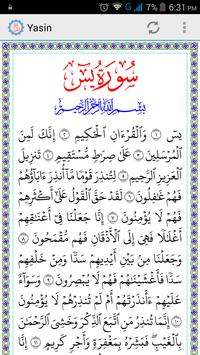 7% 6:31 PM
Yasin
سُورَةُ يسٓ
بِسْمِ اللهِ الرَّحْمٰنِ الرَّحِيْمِ
يسٓ ۝١ وَالْقُرْءَانِ الْحَكِيمِ ۝٢ إِنَّكَ لَمِنَ
الْمُرْسَلِينَ ۝٣ عَلَى صِرَاطٍ مُسْتَقِيمٍ ۝٤ تَنْزِيلَ
الْعَزِيزِ الرَّحِيمِ ۝٥ لِتُنْذِرَ قَوْمًا مَا أُنْذِرَ ءَابَاؤُهُمْ
فَهُمْ غَافِلُونَ ۝٦ لَقَدْ حَقَّ الْقَوْلُ عَلَى أَكْثَرِهِمْ
فَهُمْ لَا يُؤْمِنُونَ ۝٧ إِنَّا جَعَلْنَا فِي أَعْنَاقِهِمْ
أَغْلَالًا فَهِيَ إِلَى الْأَذْقَانِ فَهُمْ مُقْمَحُونَ ۝٨
وَجَعَلْنَا مِنْ بَيْنِ أَيْدِيهِمْ سَدًّا وَمِنْ خَلْفِهِمْ
سَدًّا فَأَغْشَيْنَاهُمْ فَهُمْ لَا يُبْصِرُونَ ۝٩ وَسَوَاءٌ
عَلَيْهِمْ ءَأَنْذَرْتَهُمْ أَمْ لَمْ تُنْذِرْهُمْ لَا يُؤْمِنُونَ ۝١٠
إِنَّمَا تُنْذِرُ مَنِ اتَّبَعَ الذِّكْرَ وَخَشِيَ الرَّحْمَنَ
بِالْغَيْبِ فَبَشِّرْهُ بِمَغْفِرَةٍ وَأَجْرٍ كَرِيمٍ ۝١١